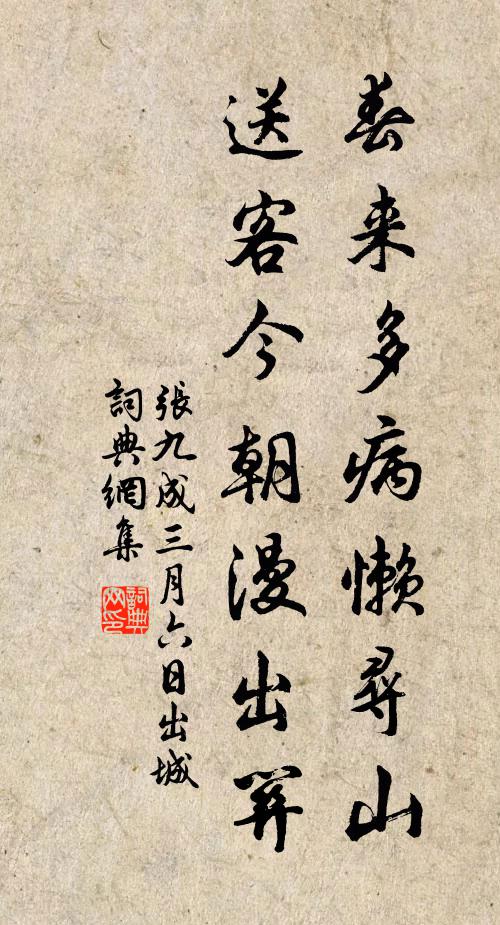 春来多病懒尋山
送客今朝漫出関
張九成三月六日出城
詞典網集
詞典网印